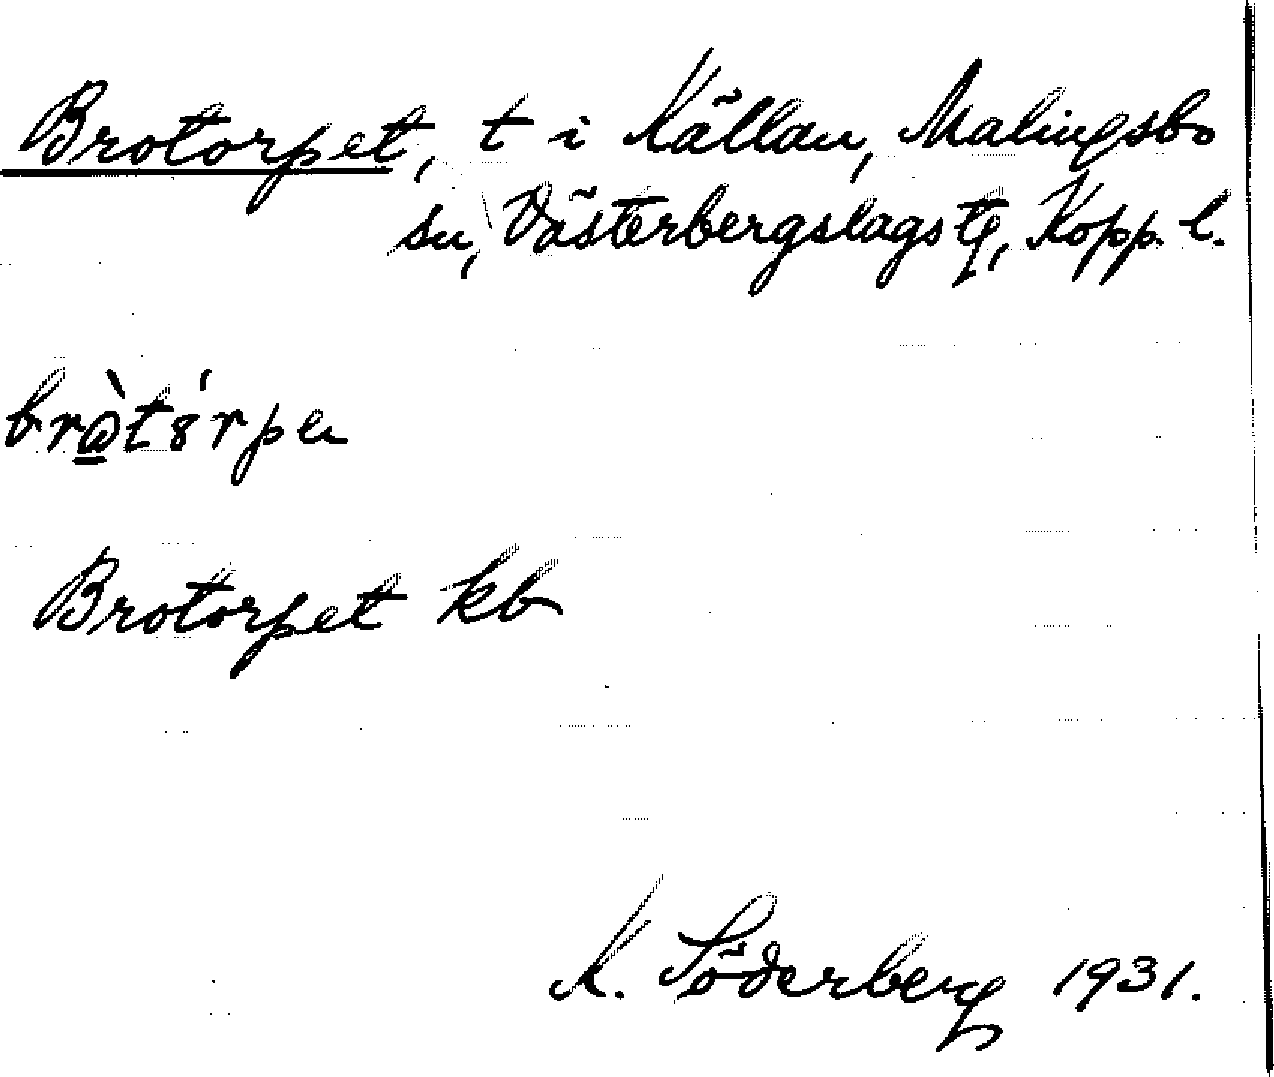 Brotorpet, t i Källan, Malingsbo
sn, Västerbergslags tg, Kopp. l.
brò̱tó̱rpe
Brotorpet kb
K. Söderberg 1931.